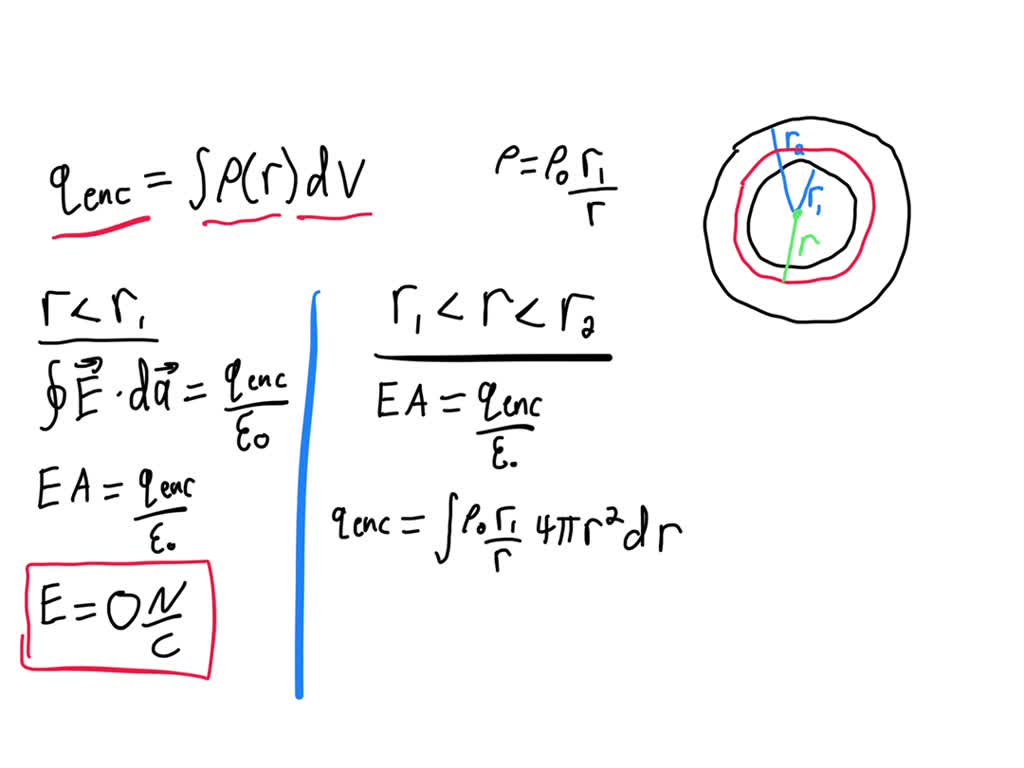 q_enc = ∫ρ(r) dV
ρ = ρ₀ r₁/r
r₂
r₁
r
r < r₁
∮E⃗ · da⃗ = q_enc/ε₀
EA = q_enc/ε₀
E = 0 N/C
r₁ < r < r₂
EA = q_enc/ε₀
q_enc = ∫ρ₀ r₁/r 4πr² dr